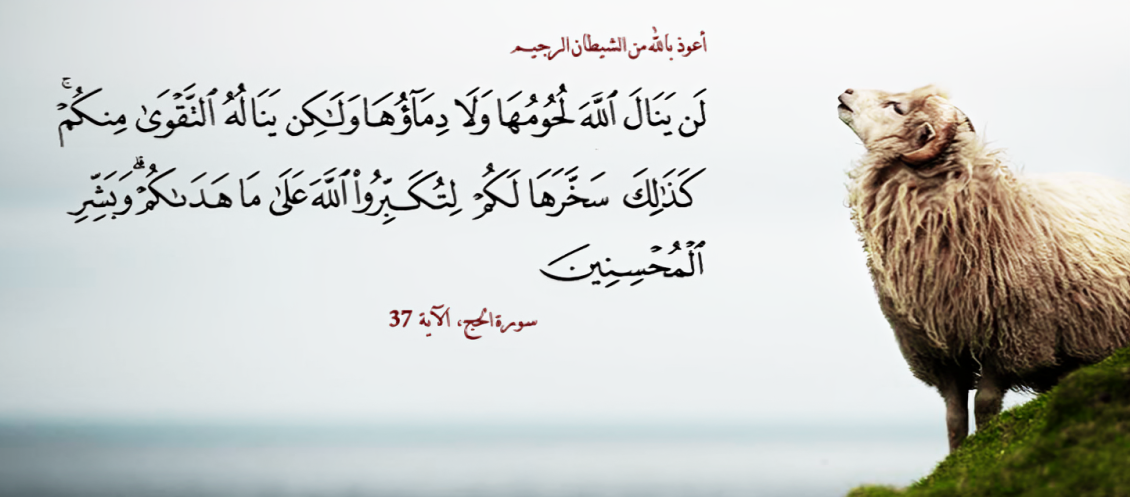 أعوذ بالله من الشيطان الرجيم
لَن يَنَالَ ٱللَّهَ لُحُومُهَا وَلَا دِمَآؤُهَا وَلَٰكِن يَنَالُهُ ٱلتَّقْوَىٰ مِنكُمْ ۚ
كَذَٰلِكَ سَخَّرَهَا لَكُمْ لِتُكَبِّرُوا۟ ٱللَّهَ عَلَىٰ مَا هَدَىٰكُمْ ۗ وَبَشِّرِ
ٱلْمُحْسِنِينَ
سورة الحج، الآية 37